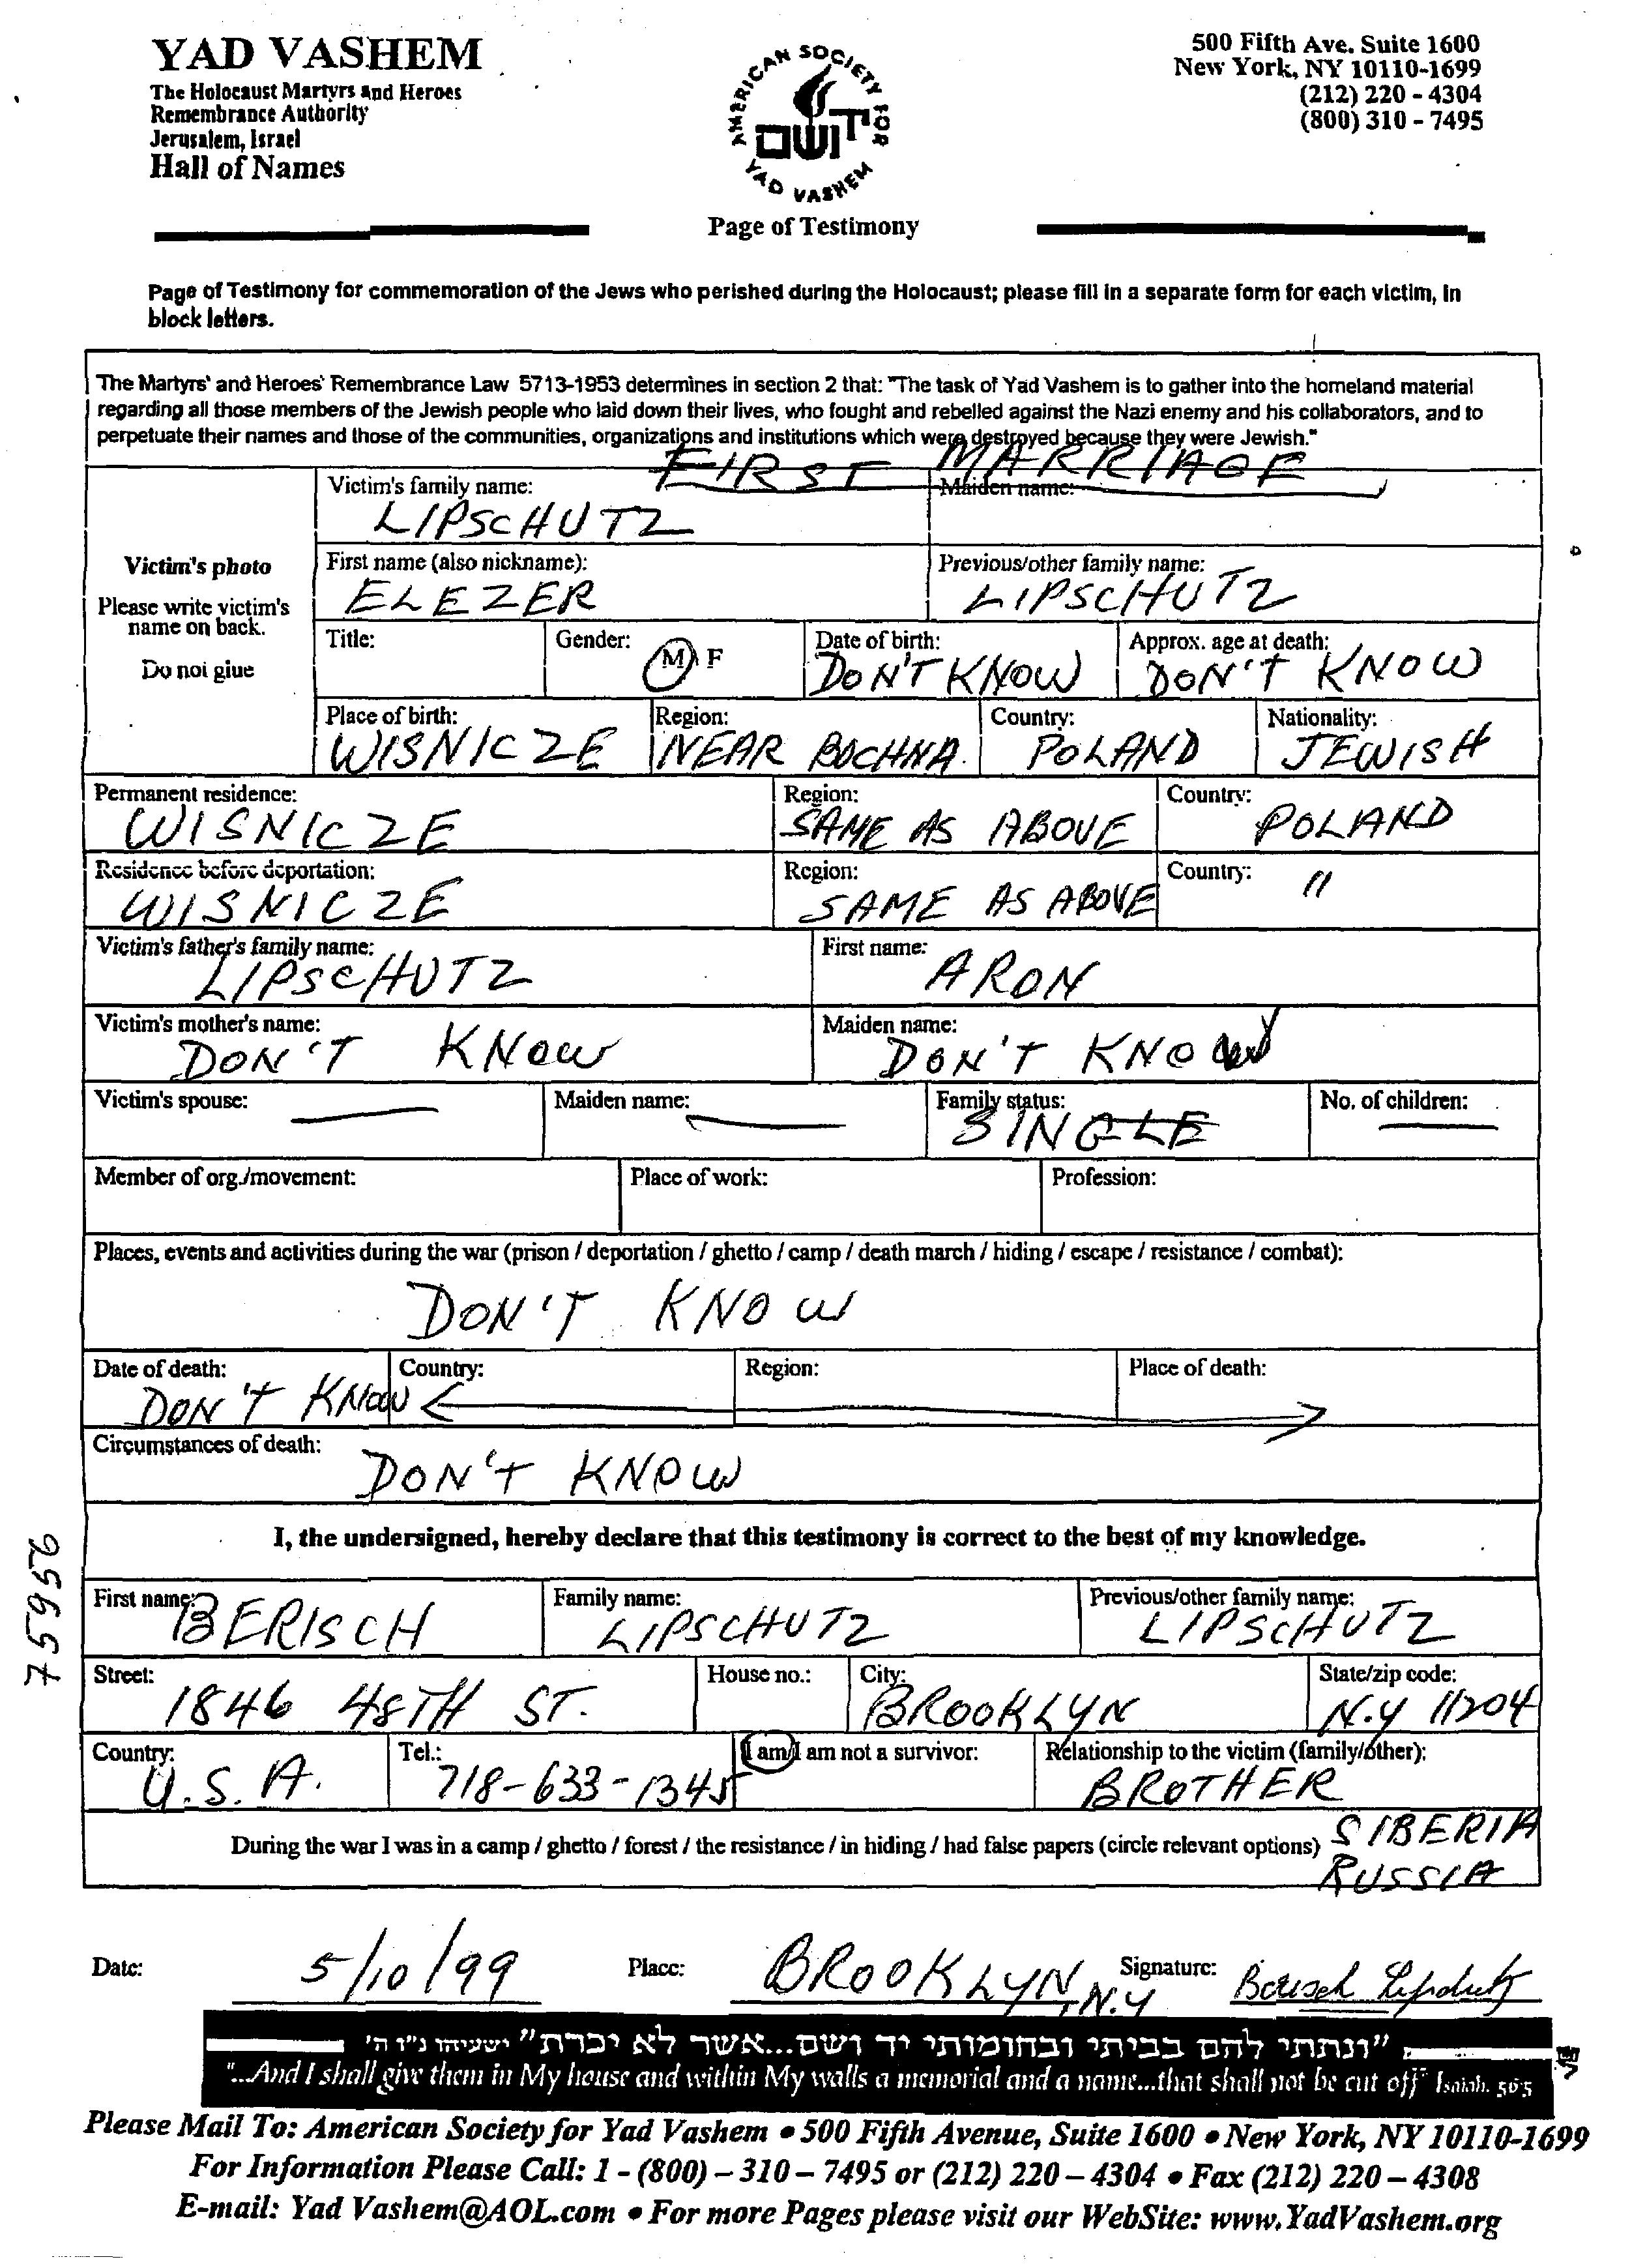 YAD VASHEM
The Holocaust Martyrs and Heroes
Remembrance Authority
Jerusalem, Israel
Hall of Names
AMERICAN SOCIETY FOR
יד ושם
YAD VASHEM
Page of Testimony
500 Fifth Ave. Suite 1600
New York, NY 10110-1699
(212) 220 - 4304
(800) 310 - 7495
Page of Testimony for commemoration of the Jews who perished during the Holocaust; please fill in a separate form for each victim, in
block letters.
The Martyrs' and Heroes' Remembrance Law 5713-1953 determines in section 2 that: "The task of Yad Vashem is to gather into the homeland material
regarding all those members of the Jewish people who laid down their lives, who fought and rebelled against the Nazi enemy and his collaborators, and to
perpetuate their names and those of the communities, organizations and institutions which were destroyed because they were Jewish."
FIRST MARRIAGE
Victim's photo
Please write victim's
name on back.
Do not glue
Victim's family name: Maiden name:
LIPSCHUTZ
First name (also nickname): Previous/other family name:
ELEZER LIPSCHUTZ
Title: Gender: M F Date of birth: Approx. age at death:
DON'T KNOW DON'T KNOW
Place of birth: Region: Country: Nationality:
WISNICZE NEAR BOCHNA. POLAND JEWISH
Permanent residence: Region: Country:
WISNICZE SAME AS ABOVE POLAND
Residence before deportation: Region: Country:
WISNICZE SAME AS ABOVE "
Victim's father's family name: First name:
LIPSCHUTZ ARON
Victim's mother's name: Maiden name:
DON'T KNOW DON'T KNOW
Victim's spouse: Maiden name: Family status: No. of children:
SINGLE
Member of org./movement: Place of work: Profession:
Places, events and activities during the war (prison / deportation / ghetto / camp / death march / hiding / escape / resistance / combat):
DON'T KNOW
Date of death: Country: Region: Place of death:
DON'T KNOW
Circumstances of death:
DON'T KNOW
I, the undersigned, hereby declare that this testimony is correct to the best of my knowledge.
75956
First name: Family name: Previous/other family name:
BERISCH LIPSCHUTZ LIPSCHUTZ
Street: House no.: City: State/zip code:
1846 48TH ST. BROOKLYN N.Y 11204
Country: Tel.: I am/I am not a survivor: Relationship to the victim (family/other):
U.S.A. 718-633-1345 BROTHER
During the war I was in a camp / ghetto / forest / the resistance / in hiding / had false papers (circle relevant options) SIBERIA
RUSSIA
Date: 5/10/99 Place: BROOKLYN, N.Y Signature: Berisch Lipschutz
"ונתתי להם בביתי ובחומותי יד ושם...אשר לא יכרת" ישעיהו נ"ו ה'
"...And I shall give them in My house and within My walls a memorial and a name...that shall not be cut off" Isaiah. 56:5
Please Mail To: American Society for Yad Vashem • 500 Fifth Avenue, Suite 1600 • New York, NY 10110-1699
For Information Please Call: 1 - (800) – 310 – 7495 or (212) 220 – 4304 • Fax (212) 220 – 4308
E-mail: Yad Vashem@AOL.com • For more Pages please visit our WebSite: www.YadVashem.org